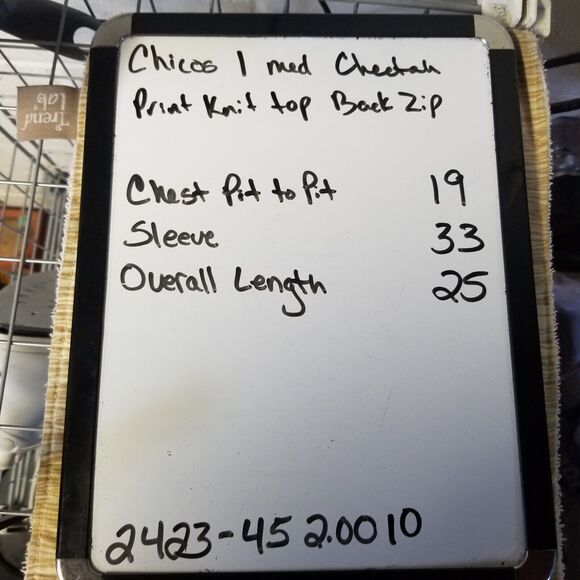 Chicos 1 med Cheetah
Print Knit top Back Zip
Chest Pit to Pit 19
Sleeve 33
Overall Length 25
2423-45 2.00 10
Trend
Lab